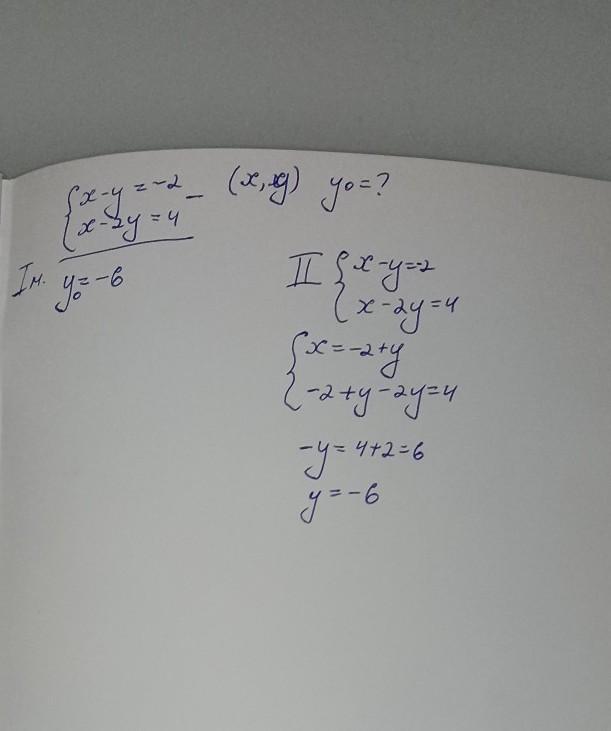 {x-y=-2 _ (x,y) y₀=?
{x-2y=4
Iм. y₀=-6
II {x-y=-2
{x-2y=4
{x=-2+y
{-2+y-2y=4
-y=4+2=6
y=-6